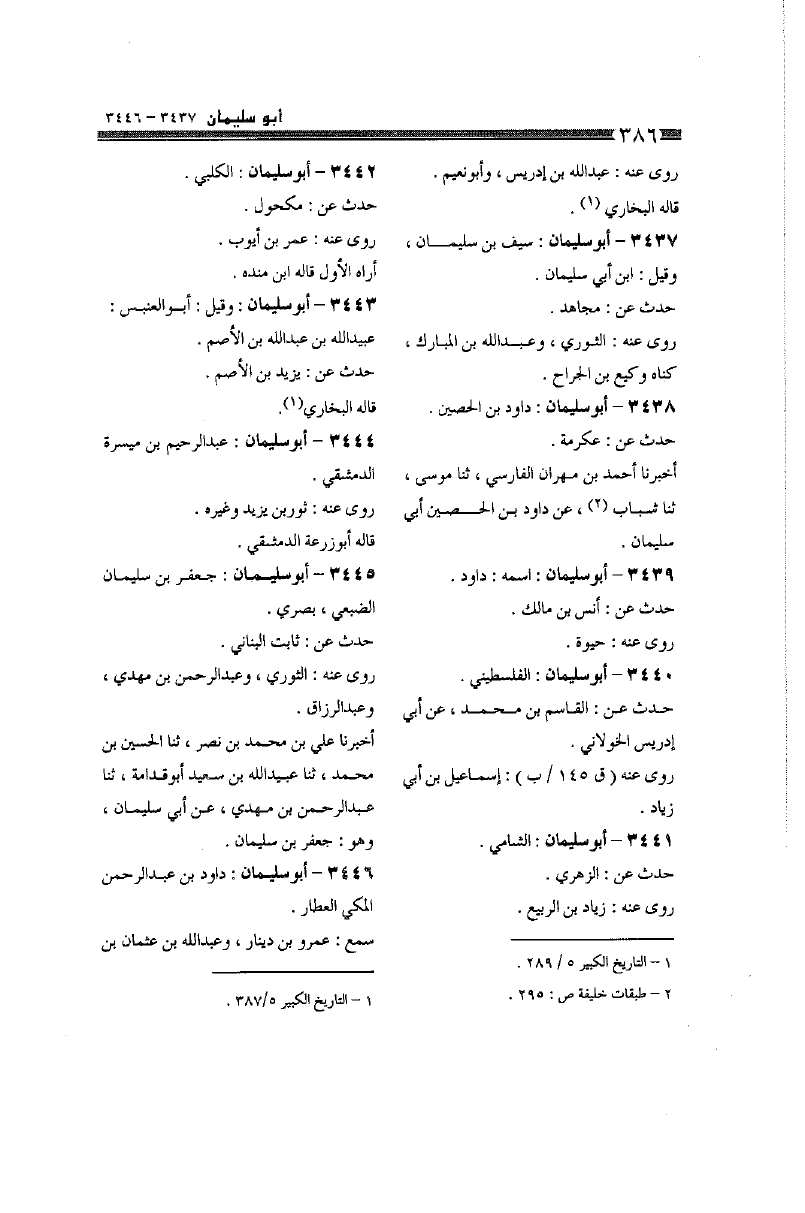 أبو سليمان ٣٤٣٧ - ٣٤٤٦
٣٨٦
روى عنه : عبدالله بن إدريس ، وأبونعيم .
قاله البخاري (١) .
٣٤٣٧ - أبوسليمان : سيف بن سليمـــان ،
وقيل : ابن أبي سليمان .
حدث عن : مجاهد .
روى عنه : الثوري ، وعبـدالله بن المبارك ،
كناه وكيع بن الجراح .
٣٤٣٨ - أبوسليمان : داود بن الحصين .
حدث عن : عكرمة .
أخبرنا أحمد بن مهران الفارسي ، ثنا موسى ،
ثنا شباب (٢) ، عن داود بـن الحـــصين أبي
سليمان .
٣٤٣٩ - أبوسليمان : اسمه : داود .
حدث عن : أنس بن مالك .
روى عنه : حيوة .
٣٤٤٠ - أبوسليمان : الفلسطيني .
حدث عن : القاسم بن محـمـد ، عن أبي
إدريس الخولاني .
روى عنه ( ق ١٤٥ / ب ) : إسماعيل بن أبي
زياد .
٣٤٤١ - أبوسليمان : الشامي .
حدث عن : الزهري .
روى عنه : زياد بن الربيع .
١ - التاريخ الكبير ٥ / ٢٨٩ .
٢ - طبقات خليفة ص : ٢٩٥ .
٣٤٤٢ - أبوسليمان : الكلبي .
حدث عن : مكحول .
روى عنه : عمر بن أيوب .
أراه الأول قاله ابن منده .
٣٤٤٣ - أبوسليمان : وقيل : أبـوالعنبـس :
عبيدالله بن عبدالله بن الأصم .
حدث عن : يزيد بن الأصم .
قاله البخاري(١).
٣٤٤٤ - أبوسليمان : عبدالرحيم بن ميسرة
الدمشقي .
روى عنه : ثوربن يزيد وغيره .
قاله أبوزرعة الدمشقي .
٣٤٤٥ - أبوسليـمان : جعفـر بن سليمـان
الضبعي ، بصري .
حدث عن : ثابت البناني .
روى عنه : الثوري ، وعبدالرحمن بن مهدي ،
وعبدالرزاق .
أخبرنا علي بن محمد بن نصر ، ثنا الحسين بن
محمد ، ثنا عبيدالله بن سعيد أبوقدامة ، ثنا
عبدالرحمـن بن مهدي ، عـن أبي سليمـان ،
وهو : جعفر بن سليمان .
٣٤٤٦ - أبوسليمان : داود بن عبـدالرحمن
المكي العطار .
سمع : عمرو بن دينار ، وعبدالله بن عثمان بن
١ - التاريخ الكبير ٣٨٧/٥ .